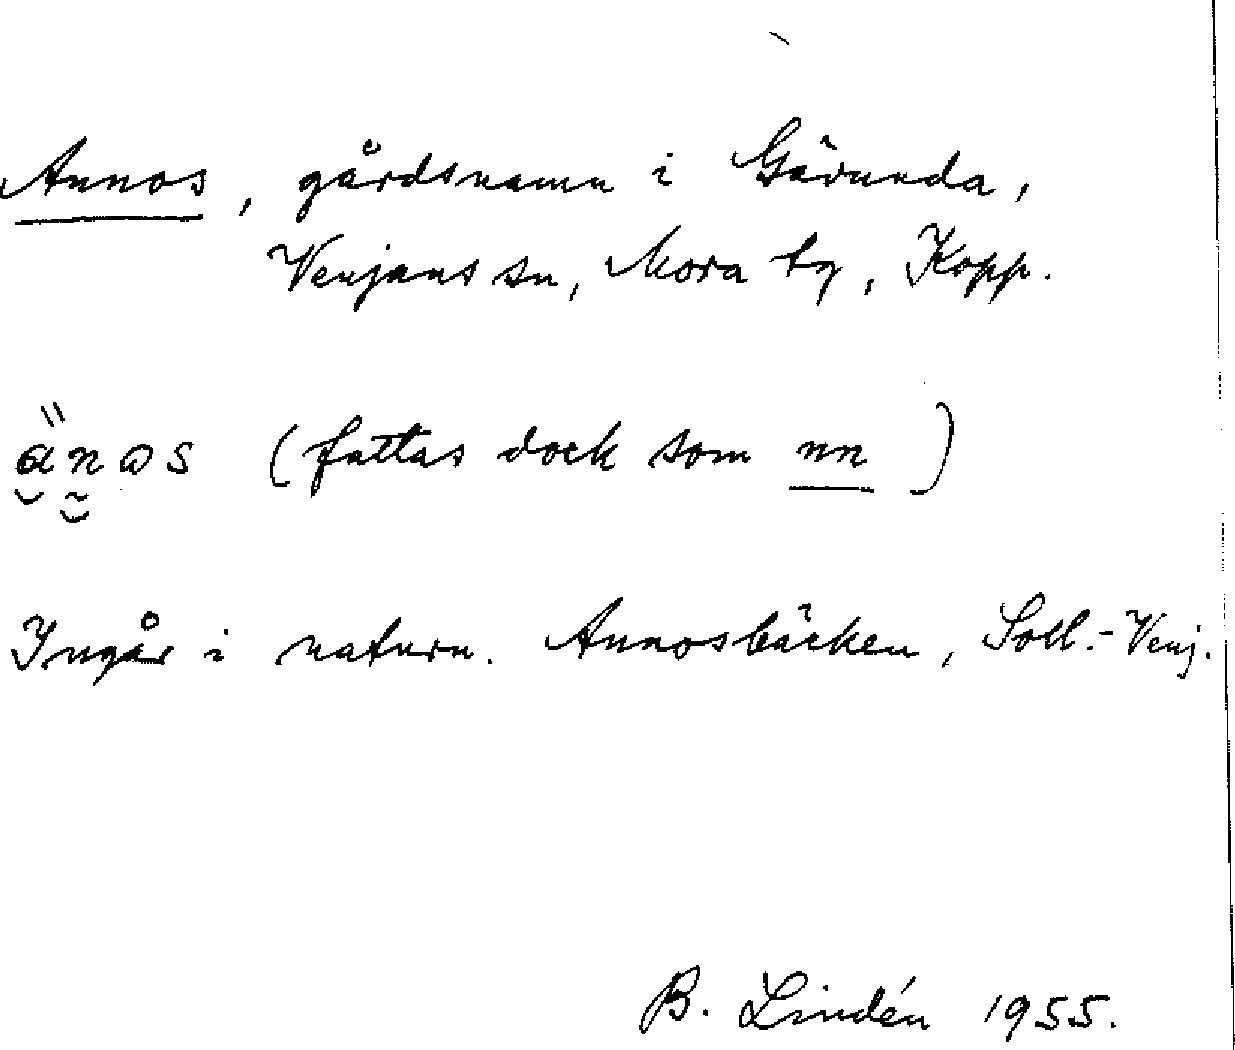 Annos, gårdsnamn i Gävunda,
Venjans sn, Mora tg, Kopp.
(fattas dock som nn)
Ingår i naturn. Annosbäcken, Soll.-Venj.
B. Lindén 1955.